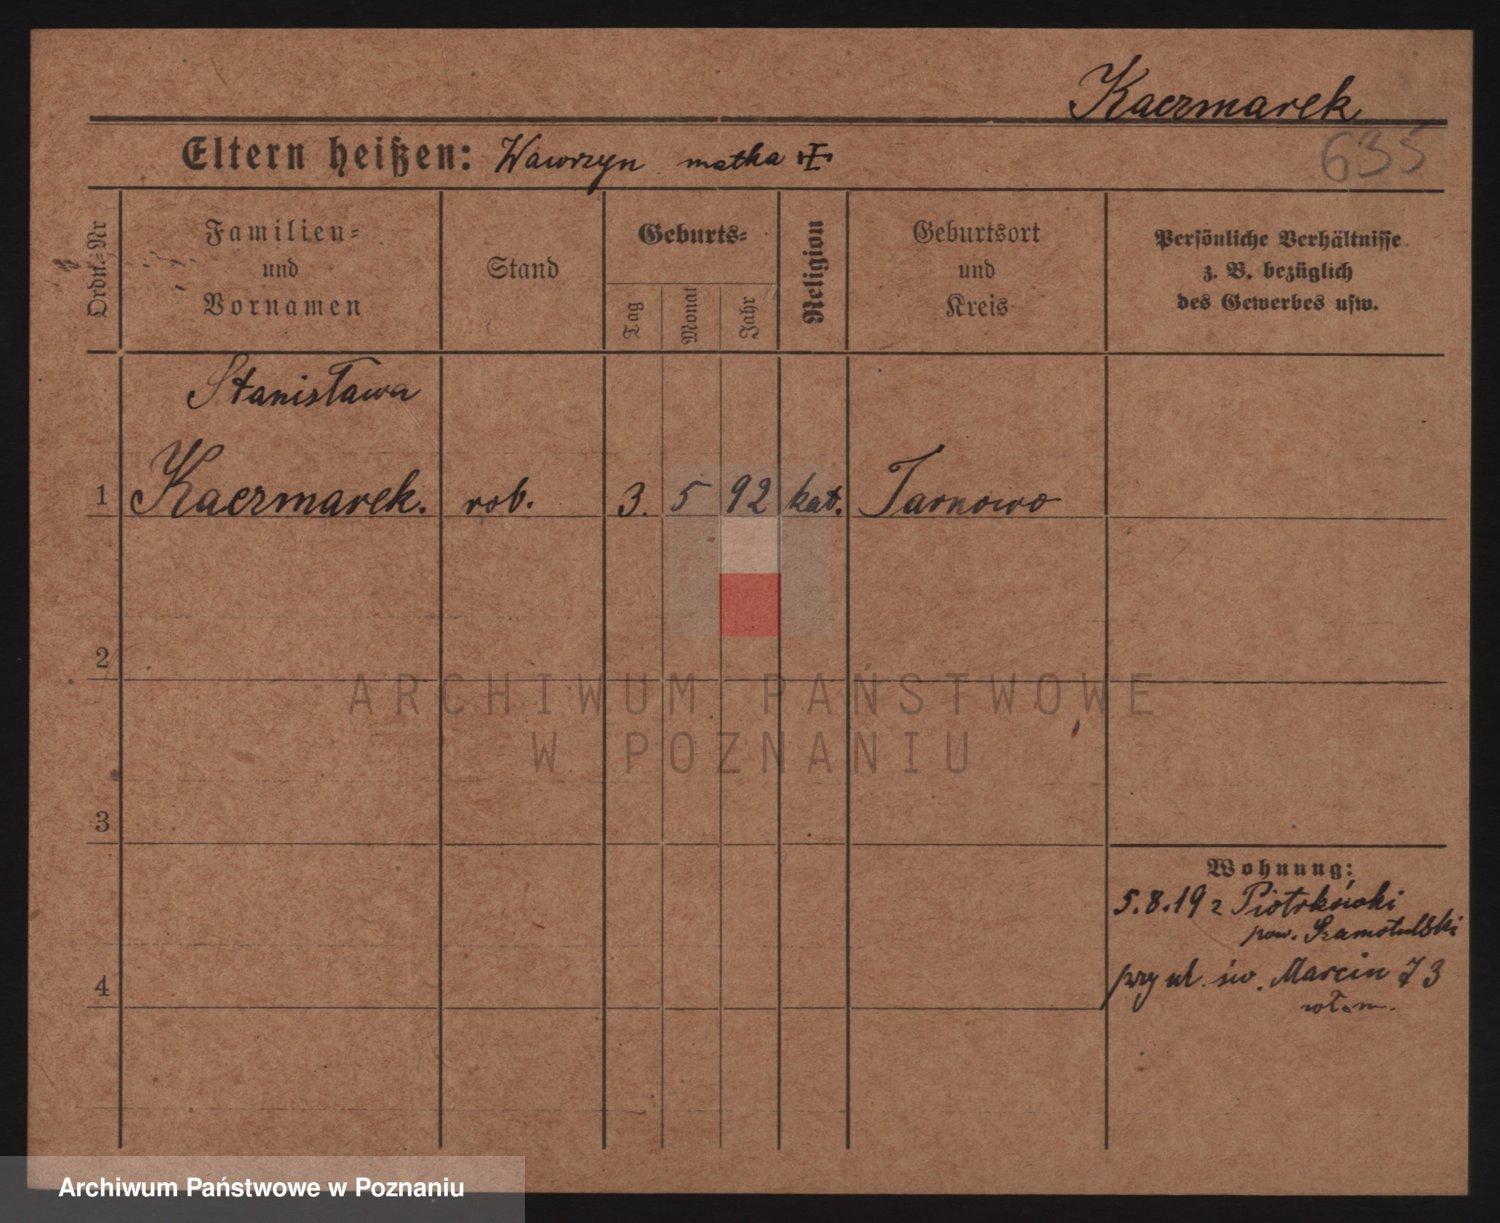 Kaczmarek
635
Eltern heißen: Wawrzyn matka
Ordn.-Nr
Familien-
und
Vornamen
Stand
Geburts-
Tag
Monat
Jahr
Religion
Geburtsort
und
Kreis
Persönliche Verhältnisse
z. B. bezüglich
des Gewerbes usw.
Stanisława
1 Kaczmarek. rob. 3. 5 92 kat. Tarnowo
2
ARCHIWUM PAŃSTWOWE
W POZNANIU
3
Wohnung:
5.8.19 z Piotrkówki
pow. Szamotulski
4
przy ul. św. Marcin 73
Archiwum Państwowe w Poznaniu